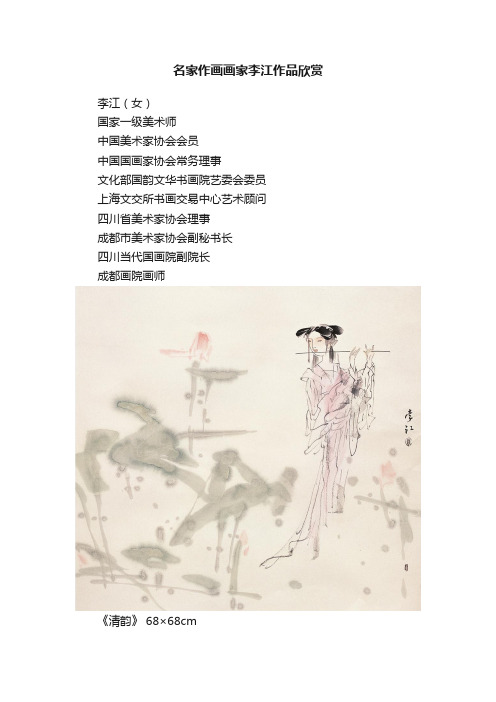 名家作画画家李江作品欣赏
李江（女）
国家一级美术师
中国美术家协会会员
中国国画家协会常务理事
文化部国韵文华书画院艺委会委员
上海文交所书画交易中心艺术顾问
四川省美术家协会理事
成都市美术家协会副秘书长
四川当代国画院副院长
成都画院画师
李江
《清韵》 68×68cm